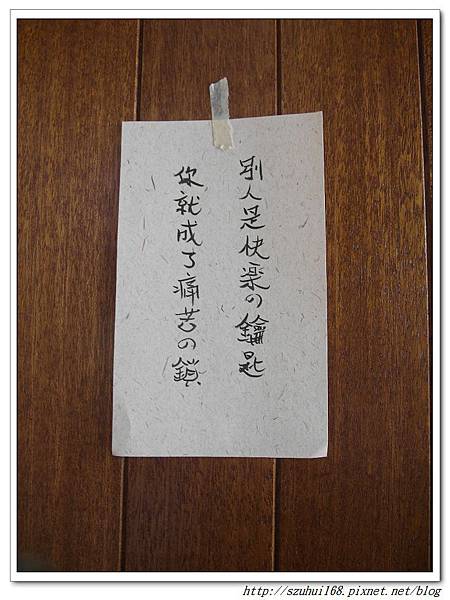 別人是快楽の鑰匙
你就成了痛苦の鎖
http://szuhui168.pixnet.net/blog